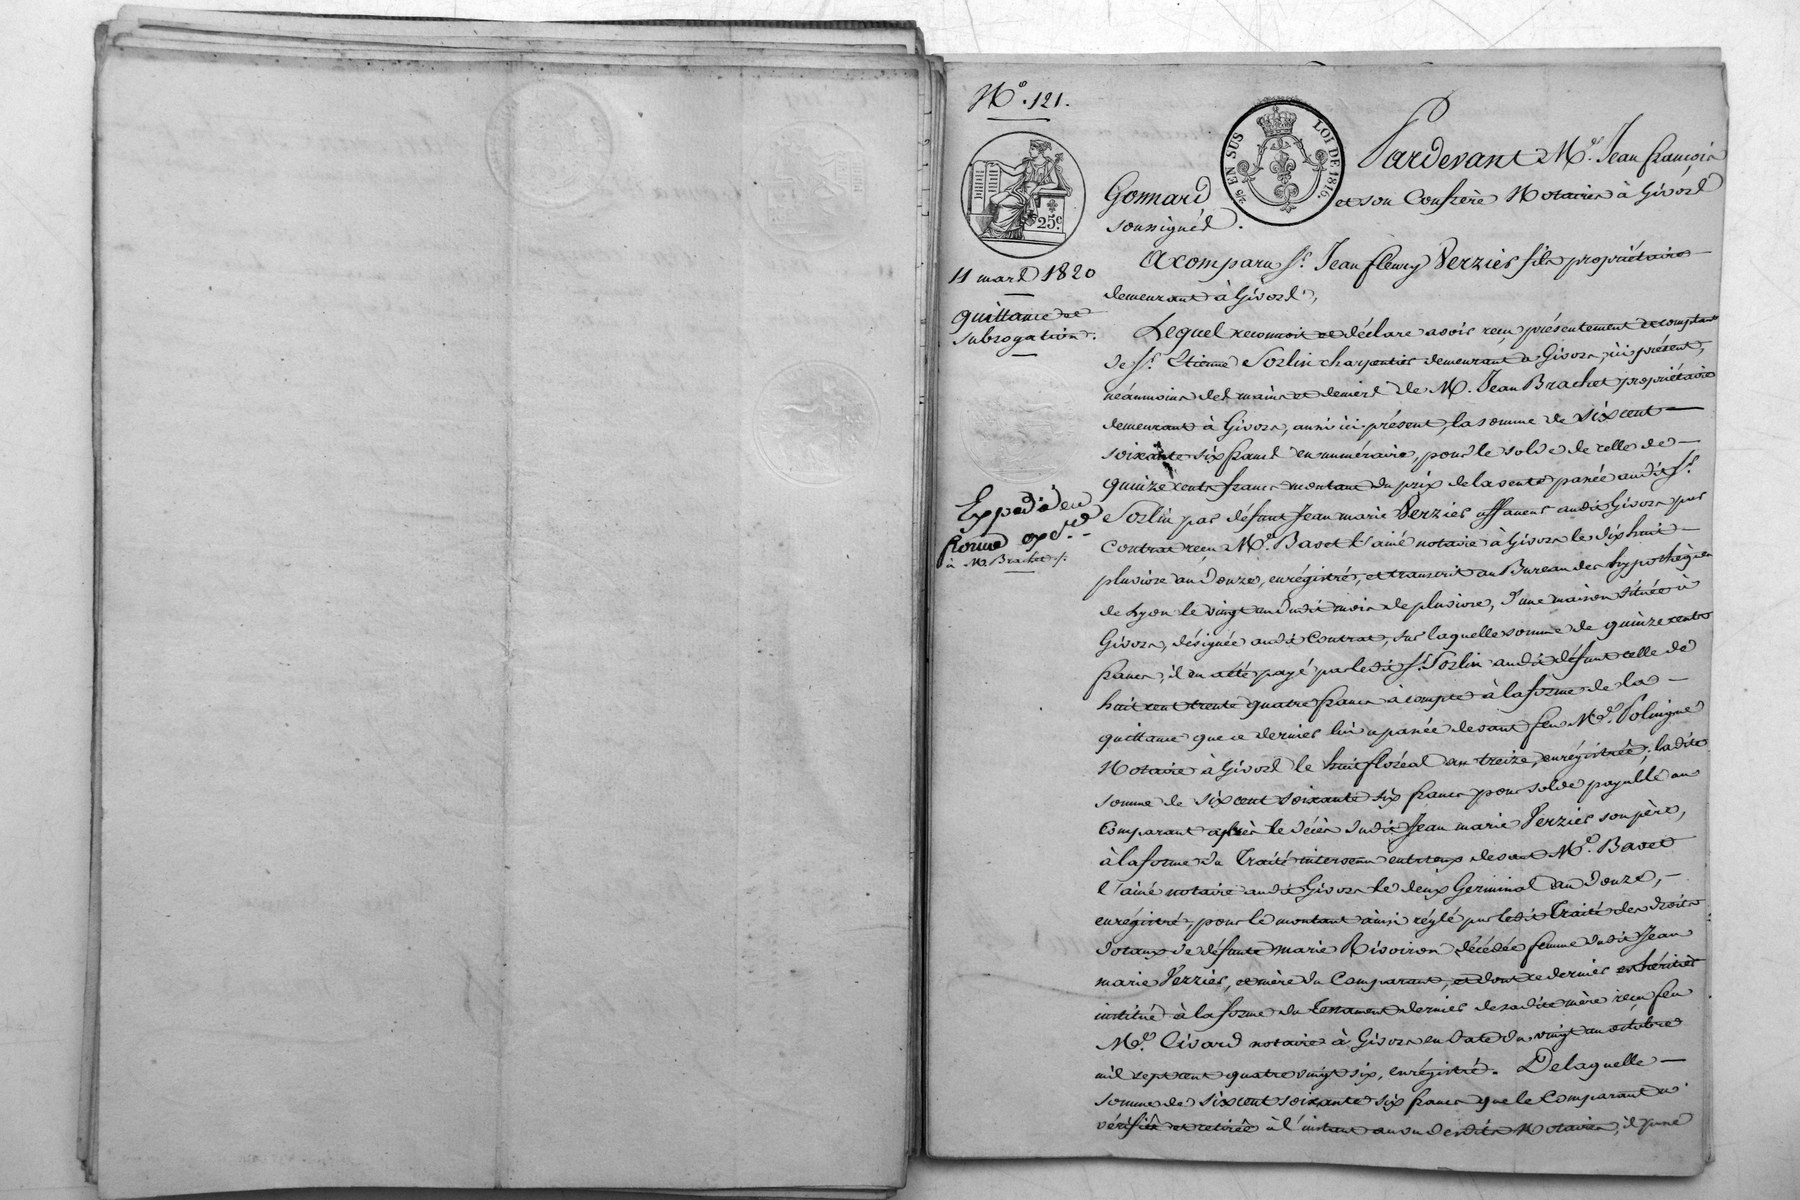 N.º 121.
EN SUS
LOI DE 1816.
25c.
11 mars 1820
quittance et
subrogation.
Expédié en
forme exéc.
à M. Brachet
Pardevant M.e Jean françois
Gonnard et son Confrère Notaires à Givors
soussignés.
A comparu S.r Jean fleury Verzier fils propriétaire
demeurant à Givors,
Lequel reconnoit et déclare avoir reçu présentement et comptant
de S.r Etienne Sorlin charpentier demeurant à Givors, ici présent,
néanmoins des mains et deniers de M. Jean Brachet propriétaire
demeurant à Givors, aussi ici présent, la somme de six cent
soixante six francs en numéraire, pour le solde de celle de
quinze cents francs montant du prix de la vente passée audit S.r
Sorlin par défunt Jean marie Verzier affaneur audit Givors par
Contrat reçu M.e Bavet l'ainé notaire à Givors le dix huit
pluviose an Douze, enrégistré, et transcrit au Bureau des hypothèques
de Lyon le vingt un dudit mois de pluviose, d'une maison située à
Givors, désignée audit Contrat, sur laquelle somme de quinze cents
francs, il en a été payé par ledit S.r Sorlin audit défunt celle de
huit cent trente quatre francs à compte à la forme de la
quittance que ce dernier lui a passée devant feu M.e
Notaire à Givors le huit floréal an treize, enrégistrée; ladite
somme de six cent soixante six francs pour solde payable au
Comparant après le décès dudit Jean marie Verzier son père,
à la forme du Traité intervenu entr'eux devant M.e Bavet
l'ainé notaire audit Givors le deux Germinal an Douze,
enrégistré, pour le montant ainsi réglé par ledit Traité des droits
dotaux de défunte marie Rivoiron décédée femme dudit Jean
marie Verzier, et mère du Comparant, et dont ce dernier est héritier
institué à la forme du testament dernier de sadite mère reçu feu
M.e notaire à Givors en date du vingt un octobre
mil sept cent quatre vingt six, enrégistré. De laquelle
somme de six cent soixante six francs que le Comparant a
vérifiée et retirée à l'instant au vu desdits Notaires, il passe